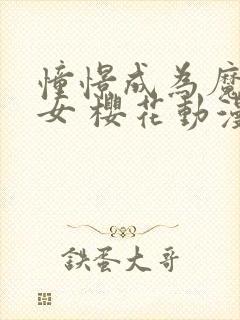 憧憬成為魔
女 櫻花動漫
鉄蛋大哥